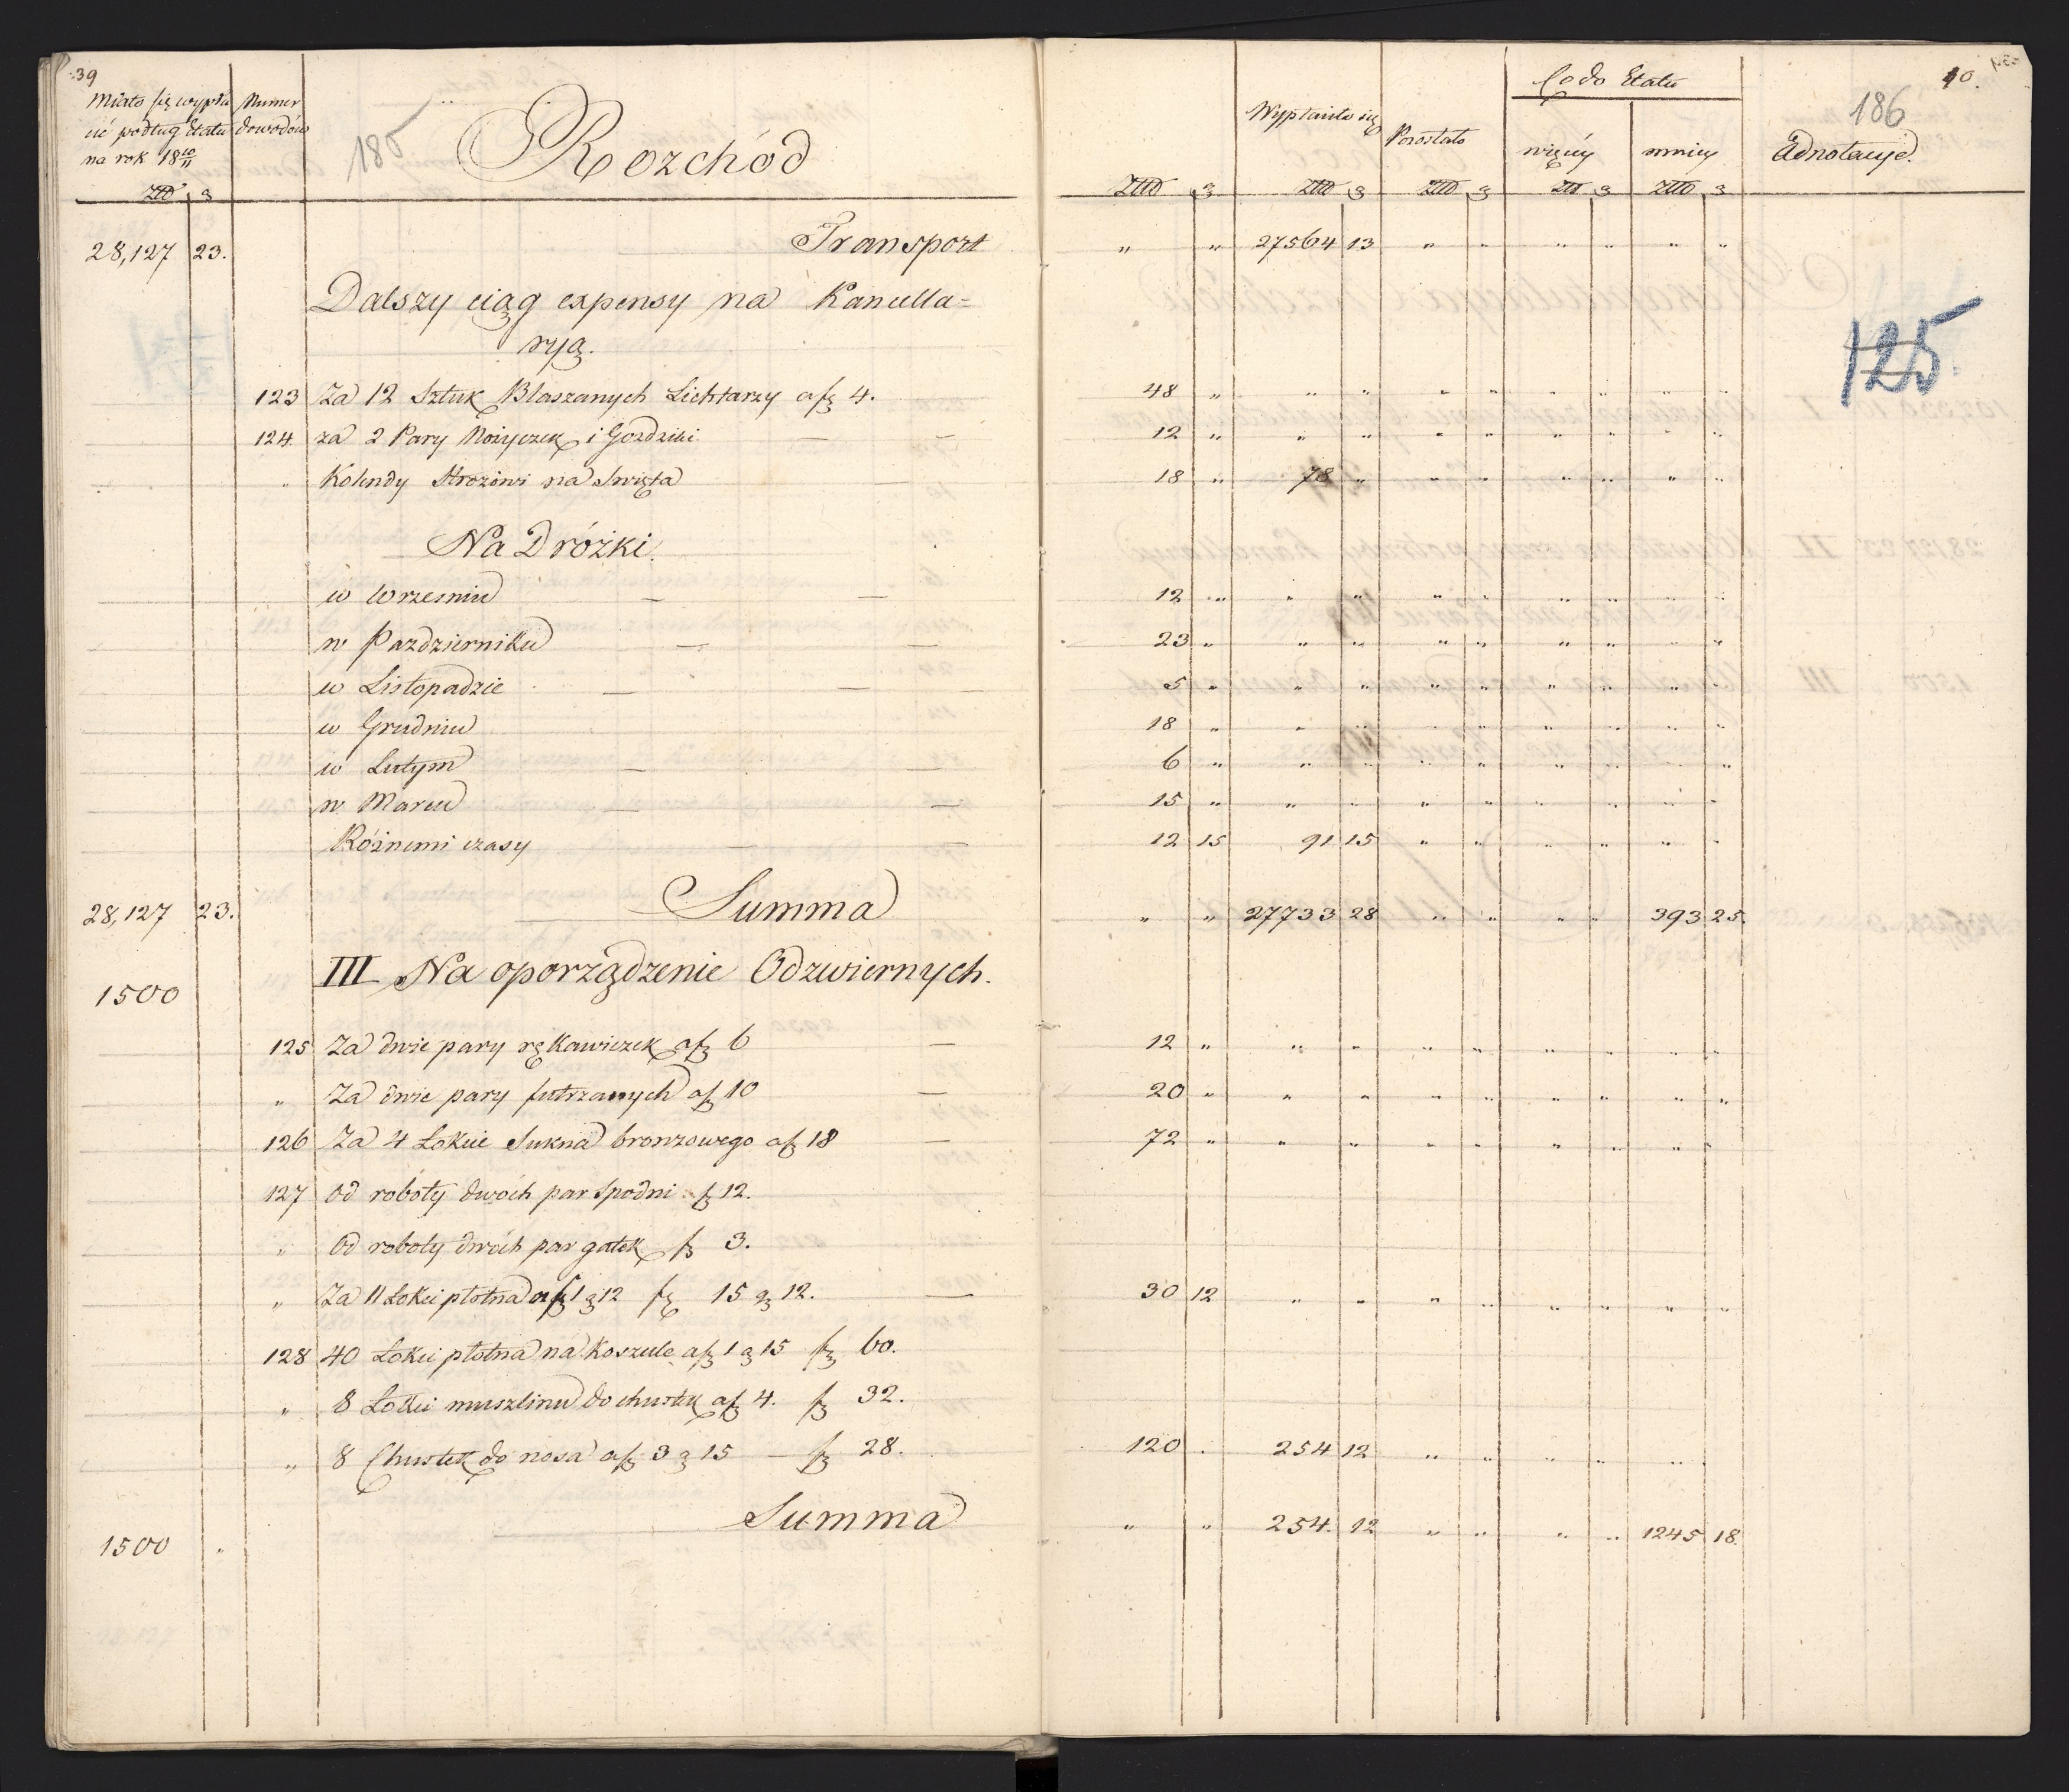 39
Miało się wypła- Numer
cić podług Etatu dowodów
na rok 18 10/11
185
Rozchód
Złl g
Co do Etatu
40.
186
Wypłaciło się Pozostało
więcéy mniéy Adnotacye.
Złl g Złl g Złl g Złl g Złl g
28,127 23. Transport " " 27564 13 " " " " " "
Dalszy ciąg expensy na Kancella-
ryą.
125
123 Za 12 Sztuk Blaszanych Lichtarzy af 4. 48 " " " " " " " " "
124. za 2 Pary Nożyczek i Goździki — — 12 " " " " " " " " "
" Kolendy Strożowi na Swięta — 18 " 78 " " " " " " "
Na Dróżki.
w Wrzesniu — — 12 " " " " " " " " "
w Pazdzierniku — — 23 " " " " " " " " "
w Listopadzie — — — 5 " " " " " " " " "
w Grudniu 18 " " " " " " " " "
w Lutym — — 6 " " " " " " " " "
w Marcu — — 15 " " " " " " " " "
Różnemi czasy — — 12 15 91 15 " " " " " "
28,127 23. Summa " " 27733 28 " " " " 393 25.
1500 III Na oporządzenie Odzwiernych.
125 Za dwie pary rękawiczek af 6 — 12 " " " " " " " " "
" Za dwie pary futrzanych af 10 — 20 " " " " " " " " "
126 Za 4 Łokcie Sukna bronzowego af 18 — 72 " " " " " " " " "
127 Od roboty dwóch par Spodni f 12.
" Od roboty dwóch par gatek f 3.
" Za 11 Łokci płótna af 1 g 12 f 15 g 12. — 30 12 " " " " " " " "
128 40 Łokci płótna na koszule af 1 g 15 f 60.
" 8 Łokci muszlinu do chustek af 4. f 32.
" 8 Chustek do nosa af 3 g 15 — f 28. 120 . 254 12 " " " " " "
Summa
1500 " " " 254. 12 " " " " 1245 18.